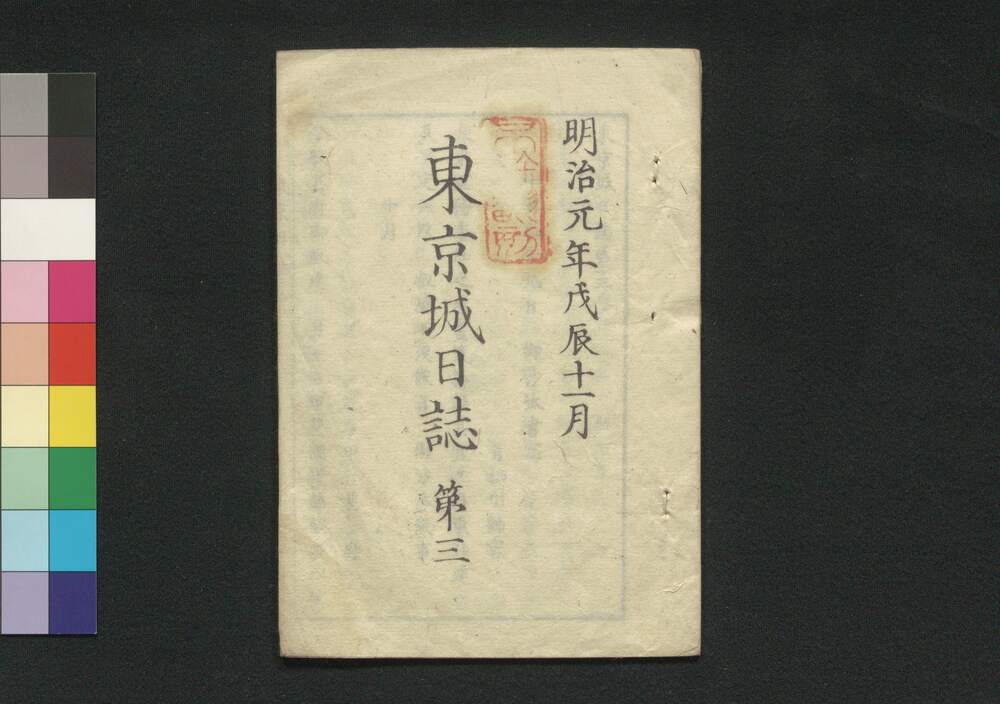 明治元年戊辰十一月
東京城日誌 第三